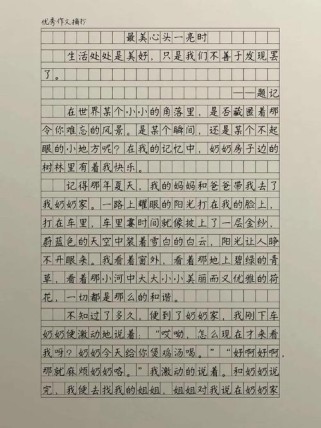 优秀作文摘抄
最美心头一亮时
生活处处是美好，只是我们不善于发现罢
了。
——题记
在世界某个小小的角落里，是否藏匿着那
令你难忘的风景。是某个瞬间，还是某个不起
眼的小地方呢？在我的记忆中，奶奶房子边的
树林里有着我快乐。
记得那年夏天，我的妈妈和爸爸带我去了
我奶奶家。一路上耀眼的阳光打在我的脸上，
打在车里，车里霎时间就像披上了一层金纱，
蔚蓝色的天空中装着雪白的白云，阳光让人睁
不开眼来。我看着窗外，看着那地上碧绿的青
草，看着那小河中大大小小美丽而又优雅的荷
花，一切都是那么的和谐。
不知过了多久，便到了奶奶家，我刚下车
奶奶便激动地说着：“哎呦，怎么现在才来看
我呀？奶奶今天给你煲鸡汤喝。”“好啊好啊，
那就麻烦奶奶咯。”我激动的说着。和奶奶说
完，我便去找我的姐姐，姐姐对我说在奶奶家